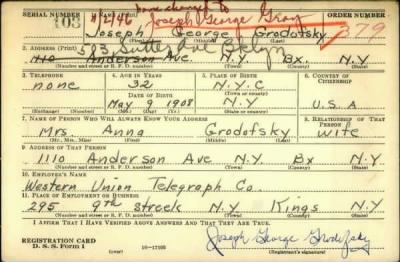 SERIAL NUMBER
1. NAME (Print)
ORDER NUMBER
name changed to
1/2/46 Joseph George Gray
103
Joseph George Grodofsky
379
583 Sutter Ave Bklyn
2. ADDRESS (Print)
1110 Anderson Ave. N.Y. Bx. N.Y
(Number and street or R. F. D. number) (Town) (County) (State)
3. TELEPHONE
4. AGE IN YEARS
5. PLACE OF BIRTH
6. COUNTRY OF CITIZENSHIP
none
32
N.Y.C
DATE OF BIRTH
(Town or county)
May 9 1908
N.Y
U.S.A
(Exchange) (Number)
(Mo.) (Day) (Yr.)
(State or country)
7. NAME OF PERSON WHO WILL ALWAYS KNOW YOUR ADDRESS
8. RELATIONSHIP OF THAT PERSON
Mrs. Anna Grodofsky
wife
(Mr., Mrs., Miss) (First) (Middle) (Last)
9. ADDRESS OF THAT PERSON
1110 Anderson Ave N.Y. Bx N.Y
(Number and street or R. F. D. number) (Town) (County) (State)
10. EMPLOYER'S NAME
Western Union Telegraph Co.
11. PLACE OF EMPLOYMENT OR BUSINESS
295 9th street N.Y. Kings N.Y
(Number and street or R. F. D. number) (Town) (County) (State)
I AFFIRM THAT I HAVE VERIFIED ABOVE ANSWERS AND THAT THEY ARE TRUE.
REGISTRATION CARD
D. S. S. Form 1
(over)
16—17105
Joseph George Grodofsky
(Registrant's signature)